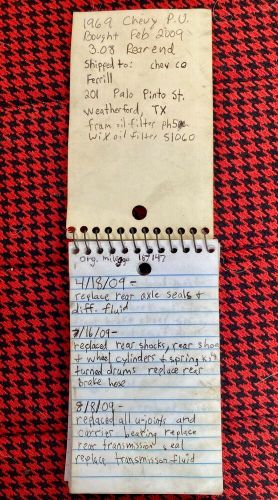 1969 Chevy P.U.
Bought Feb 2009
3.08 Rear end
Shipped to: Chev co
Ferrill
201 Palo Pinto St.
Weatherford, TX
fram oil filter ph5
Wix oil filter 51060
Org. mileage 167147
4/18/09 -
replace rear axle seals +
diff. fluid
7/16/09 -
replaced rear shocks, rear shoe
+ wheel cylinders + spring kits
turned drums replace rear
brake hose
8/8/09 -
replaced all u-joints and
carrier bearing replace
rear transmission seal
replace transmisson fluid